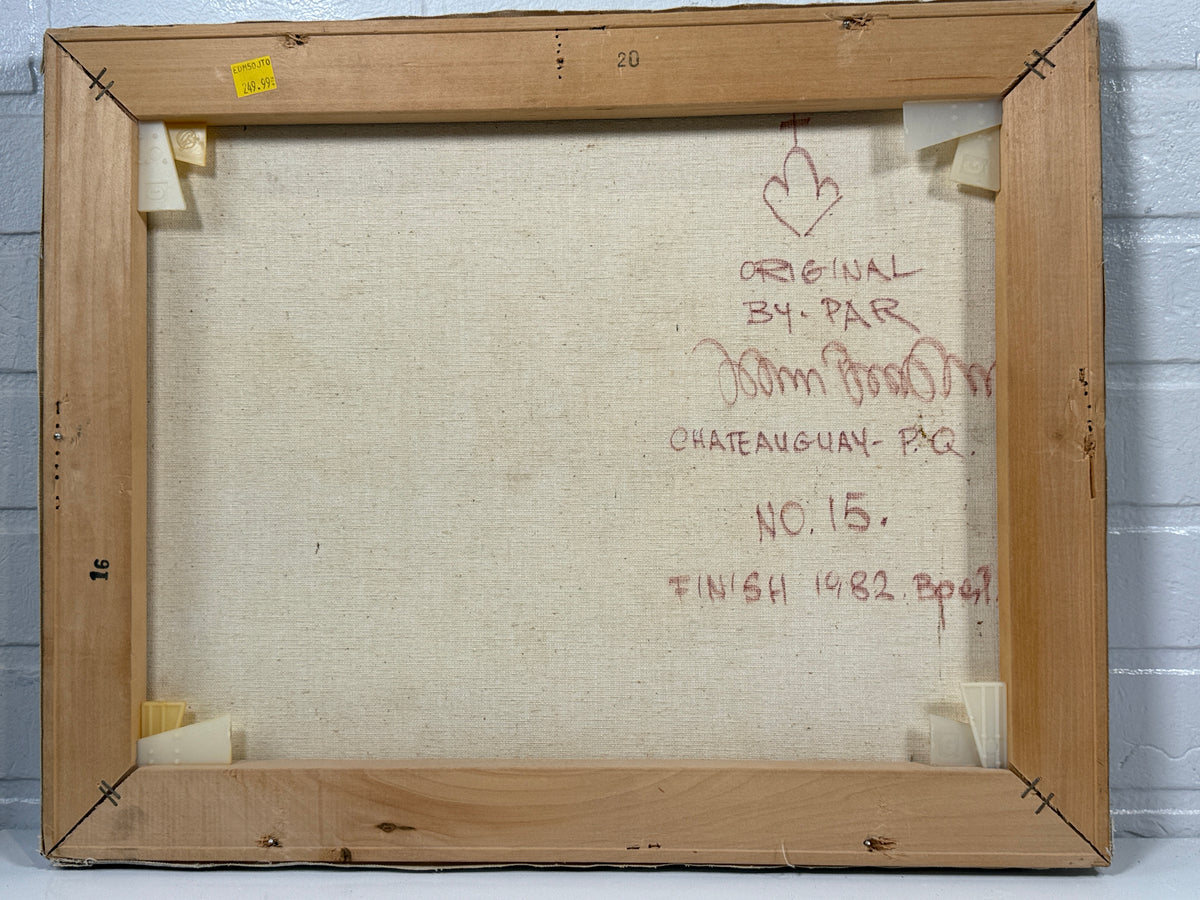 20
EDM50JTO
249.99
ORIGINAL
BY. PAR
CHATEAUGUAY- P.Q.
NO. 15.
16
FINISH 1982.